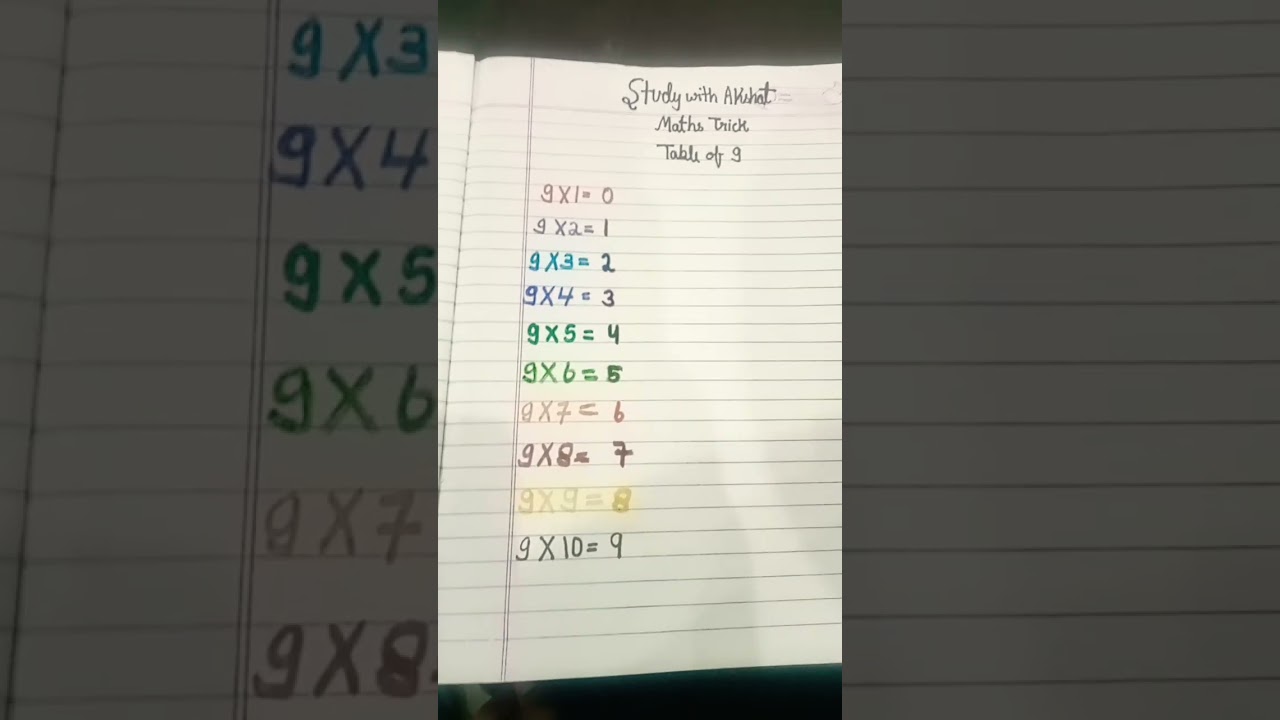 Study with Akshat
Maths Trick
Table of 9
9X1= 0
9X2= 1
9X3= 2
9X4= 3
9X5= 4
9X6= 5
9X7= 6
9X8= 7
9X9= 8
9X10= 9
9X3
9X4
9X5
9X6
9X7
9X8